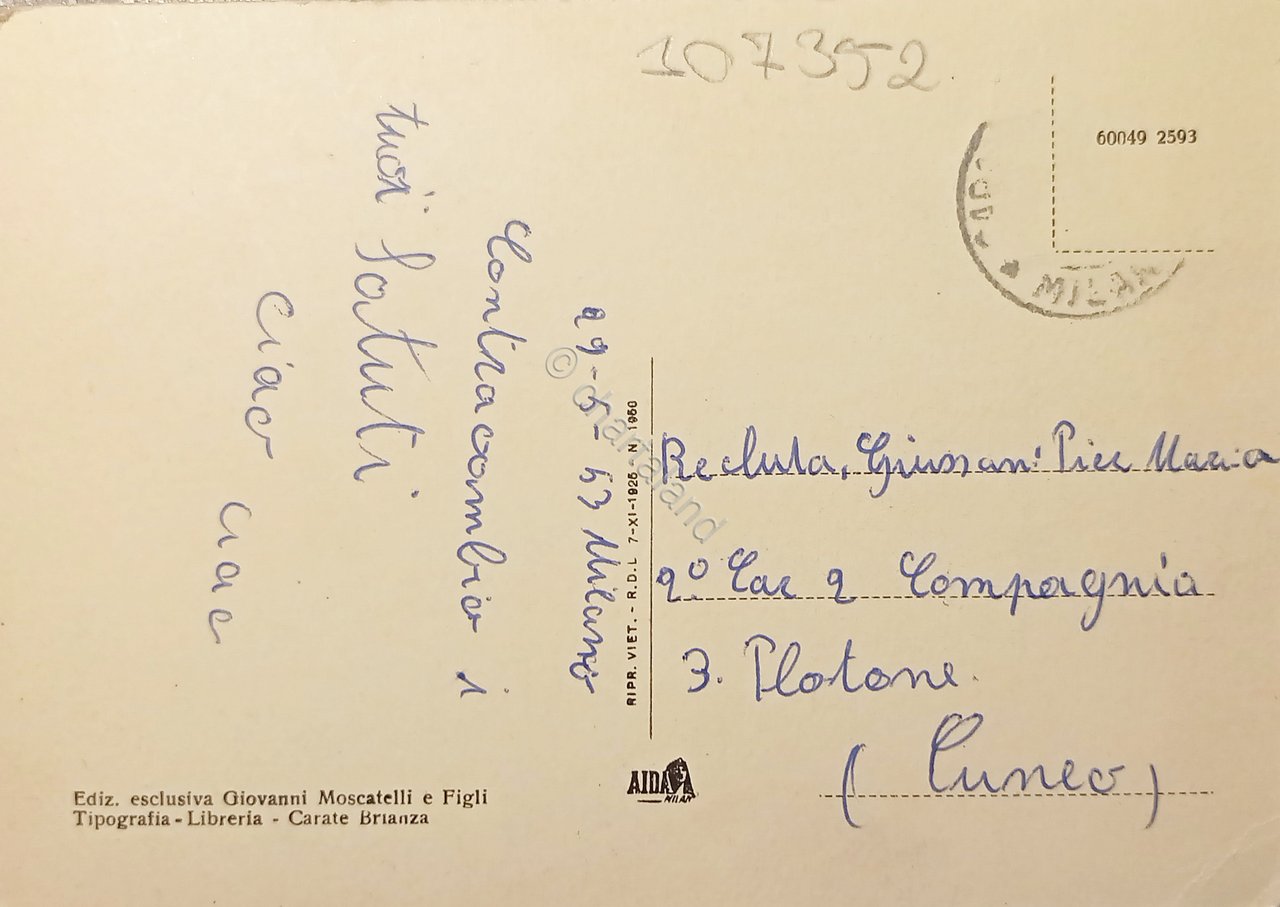 107352
60049 2593
MILAN
29-5-53 Milano
Contracambio i
tuoi Saluti.
ciao ciao
© chartaland
RIPR. VIET. - R.D.L. 7-XI-1925 - N. 1950
Recluta, Giussani Pier Maria
2° Car 2 Compagnia
3. Plotone.
(Cuneo)
AIDA
MILAN
Ediz. esclusiva Giovanni Moscatelli e Figli
Tipografia - Libreria - Carate Brianza